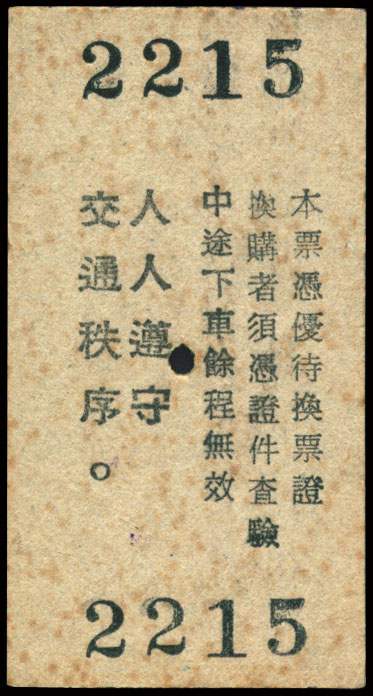 2215
本票憑優待換票證
換購者須憑證件查驗
中途下車餘程無效
人人遵守
交通秩序。
2215